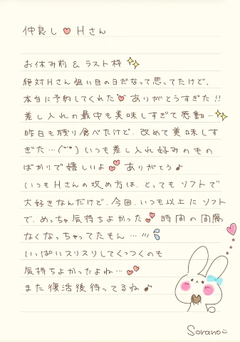 仲良し Hさん
お休み前 & ラスト枠
絶対Hさん狙い目の日だなって思ってたけど、
本当に予約してくれた ありがとうすぎた!!
差し入れの最中も美味しすぎて感動…
昨日も残り食べたけど、改めて美味しす
ぎた…(´`) いつも差し入れ好みのもの
ばかりで嬉しいよ ありがとう♪
いつもHさんの攻め方は、とってもソフトで
大好きなんだけど、今回、いつも以上にソフト
で、めっちゃ気持ちよかった 時間の間隔
なくなっちゃってたもん…!!!
いっぱいスリスリしてくっつくのも
気持ちよかったよね…
また復活後待ってるね♪
Sorano